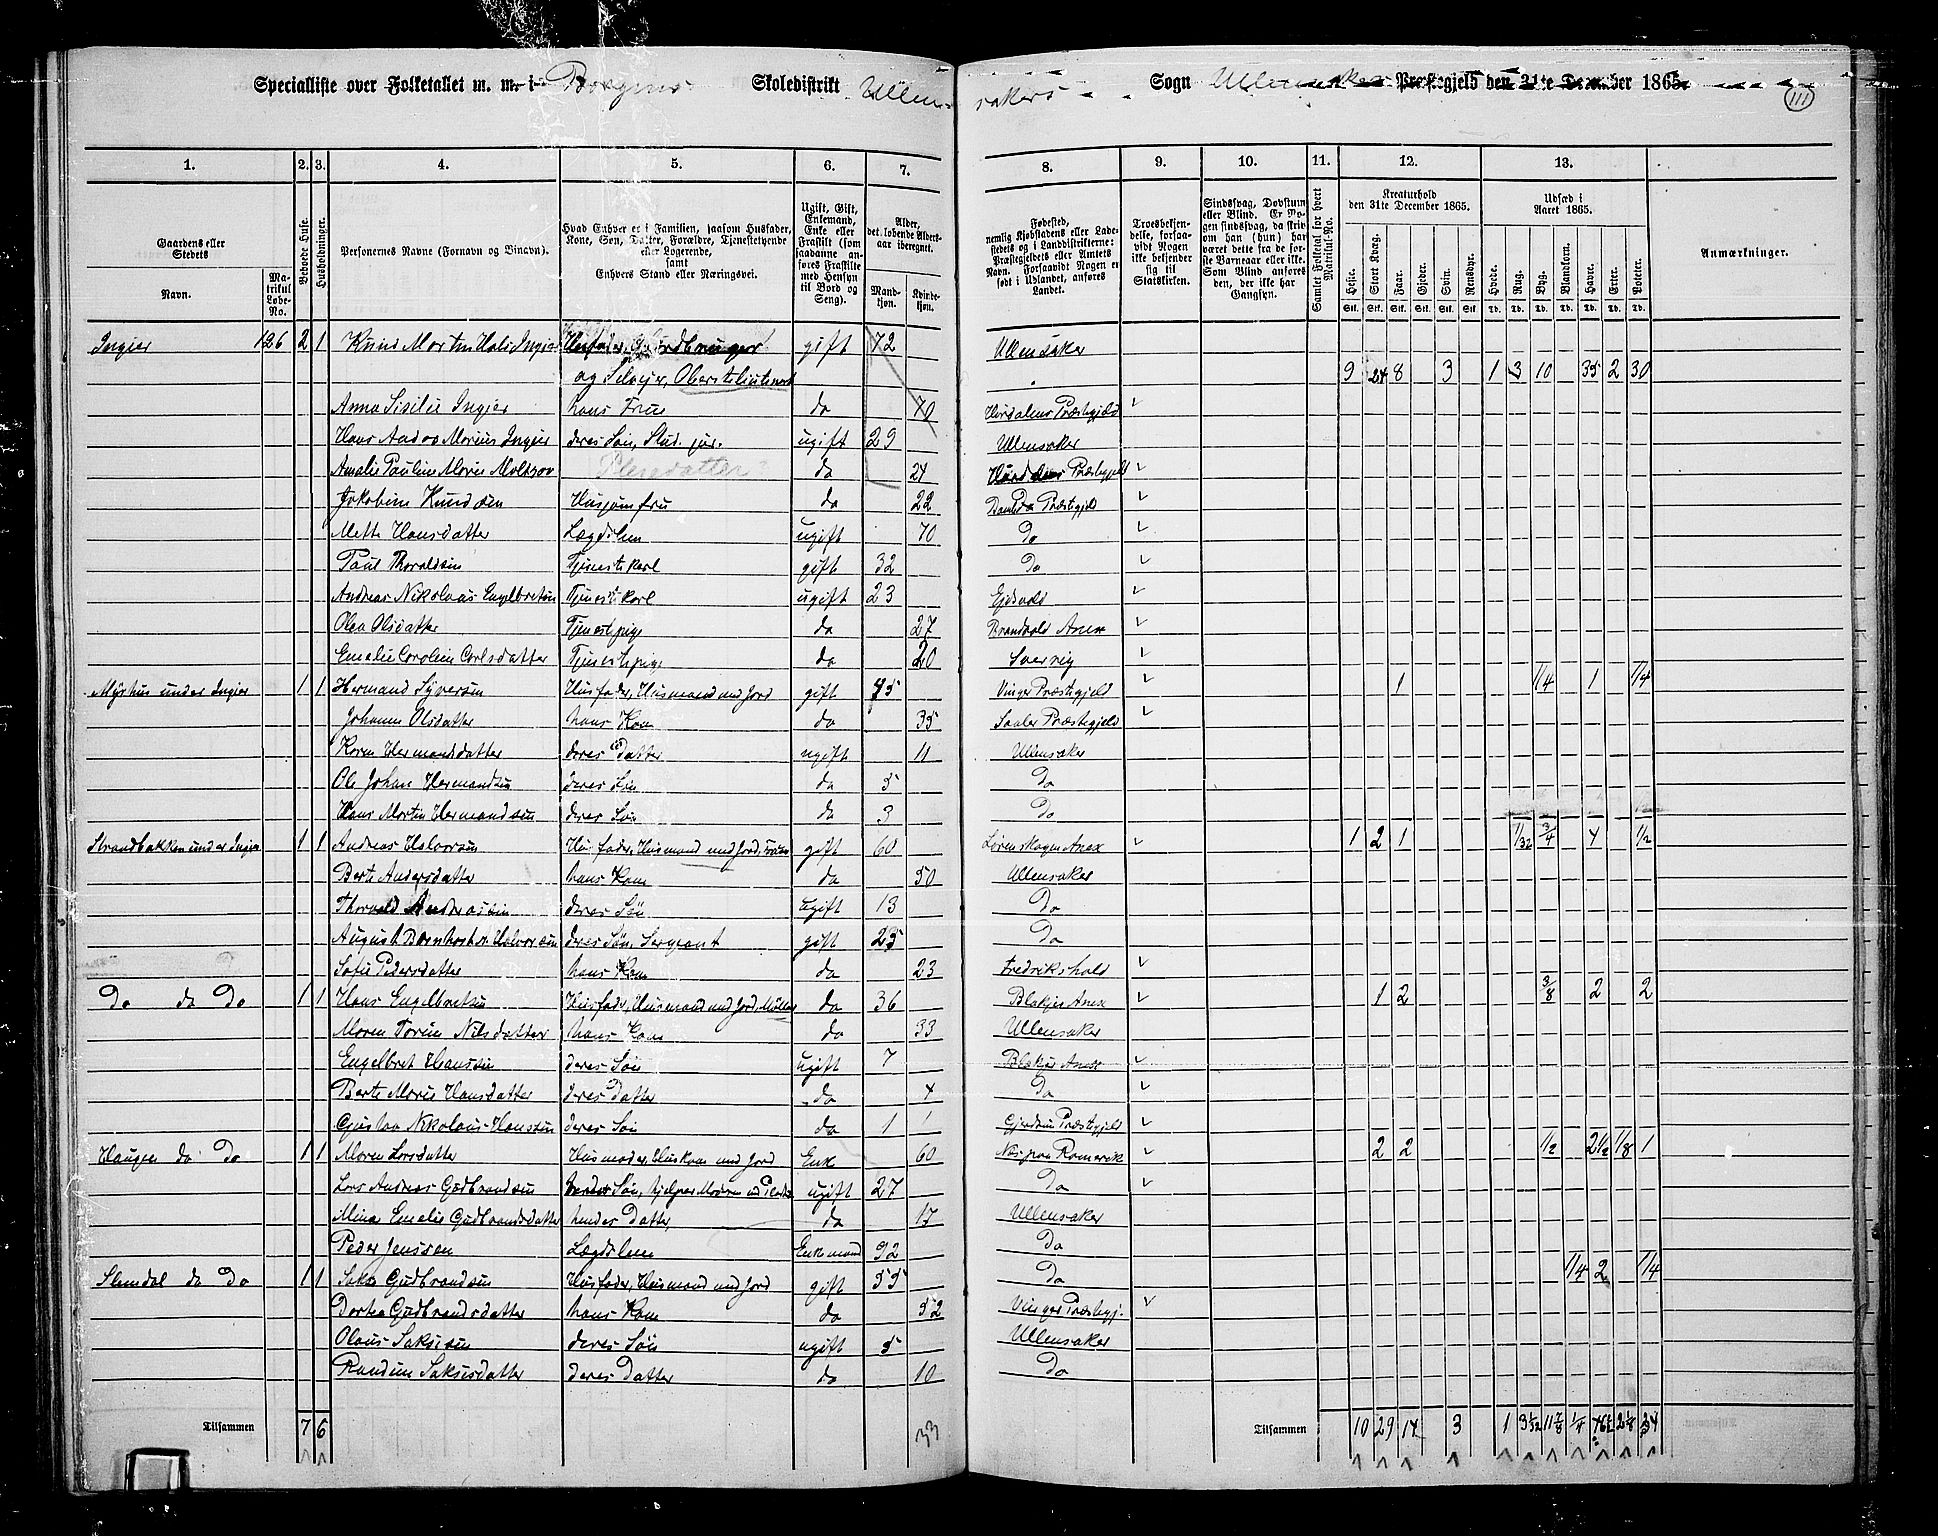 Specialliste over Folketallet m. m. i Skoledistrikt Ullen-
sakers Sogn Ullensaker Præstegjeld den 31te December 1865.
111
1. 2. 3. 4. 5. 6. 7. 8. 9. 10. 11. 12. 13.
Gaardens eller Stedets Navn. Matrikul Løbe-No.
Beboede Huse.
Husholdninger.
Personernes Navne (Fornavn og Binavn).
Hvad Enhver er i Familien, saasom Husfader, Kone, Søn, Datter, Forældre, Tjenestetyende eller Logerende, samt Enhvers Stand eller Næringsvei.
Ugift, Gift, Enkemand, Enke eller Fraskilt (som saadanne anføres Fraskilte med Hensyn til Bord og Seng).
Alder, det løbende Aldersaar iberegnet. Mandkjøn. Kvindekjøn.
Fødested, nemlig Kjøbstadens eller Ladestedets og i Landdistrikterne: Præstegjeldets eller Amtets Navn. Forsaavidt Nogen er født i Udlandet, anføres Landet.
Troesbekjendelse, forsaavidt Nogen ikke bekjender sig til Statskirken.
Sindssvag, Døvstum eller Blind. Er Nogen sindssvag, da skrives om han (hun) har været dette fra de første Barneaar eller ikke. Som Blind anføres den, der ikke har Gangsyn.
Samlet Folketal for hvert Matrikul-No.
Kreaturhold den 31te December 1865.
Heste. Stort Kvæg. Faar. Gjeder. Svin. Rensdyr.
Udsæd i Aaret 1865.
Hvede. Rug. Byg. Blandkorn. Havre. Erter. Poteter.
Anmærkninger.
Ingier 126 2 1 Knud Morten Hals Ingier Husfader, Gaardbruger gift 72 Ullensaker
og Selveier, Oberstlieutenant 9 24 8 3 1 3 10 35 2 30
Anna Sisilie Ingier hans Frue do 70 Hurdalens Præstegjeld
Hans Anders Marius Ingier deres Søn, Stud. jur. ugift 29 Ullensaker
Amalie Pauline Marie Pleiedatter do 24 Præstegjeld
Jakobine Knudsen Husjomfru do 22 Præstegjeld
Mette Hansdatter Lægdslem ugift 70 Do
Paul Thoraldsen Tjenestekarl gift 32 Do
Andreas Nikolaus Engelbretsen Tjenestekarl ugift 23 Eidsvold
Olea Olsdatter Tjenestepige do 27 Brandvold Anex
Emelie Caroline Carlsdatter Tjenestepige do 20 Sverrig
Myrhus under Ingier 1 1 Hermand Syversen Husfader, Husmand med Jord gift 45 Vinger Præstegjeld 1 1/4 1 1/4
Johanne Olsdatter hans Kone do 35 Præstegjeld
Karen Hermandsdatter deres Datter ugift 11 Ullensaker
Ole Johan Hermandsen deres Søn do 5 Do
Hans Martin Hermandsen deres Søn do 3 Do
Strandbakken under Ingier 1 1 Andreas Halvorsen Husfader, Husmand med Jord, gift 60 Lørenskogen Anex 1 2 1 1/32 3/4 4 1/2
Berte Andersdatter hans Kone do 50 Ullensaker
Thorvald Andreassen deres Søn ugift 13 Do
August Halvorsen deres Søn, Sergeant gift 25 Do
Sofie Pedersdatter hans Kone do 23 Fredrikshald
Do do Do 1 1 Hans Engelbretsen Husfader, Husmand med Jord, Møller do 36 Blakjer Anex 1 2 3/8 2 2
Maren Torine Nilsdatter hans Kone do 33 Ullensaker
Engelbret Hanssen deres Søn ugift 7 Blakjer Anex
Berte Marie Hansdatter deres Datter do 4 Do
Gustav Nikolaus Hanssen deres Søn do 1 Gjerdrum Præstegjeld
Haugen do Do 1 1 Maren Larsdatter Husmoder, Huskone med Jord Enk 60 Næs paa Romerik 2 2 1/2 2 1/2 1/8 1
Lars Andreas Gudbrandsen hendes Søn, hjelper Moderen ugift 27 Do
Mina Emelie Gudbrandsdatter hendes Datter do 17 Ullensaker
Peder Jenssen Lægdslem Enkmand 92 Do
do Do 1 1 Saks Gudbrandsen Husfader, Husmand med Jord gift 55 Do 1/4 2 1/4
Dortea Gudbrandsdatter hans Kone do 52 Vinger Præstegj.
Olaus Saksesen deres Søn ugift 5 Ullensaker
Randine Saksesdatter deres Datter do 10 Do
Tilsammen 7 6 33 Tilsammen 10 29 14 3 1 3 1/32 11 7/8 1/4 46 1/2 2 1/8 34